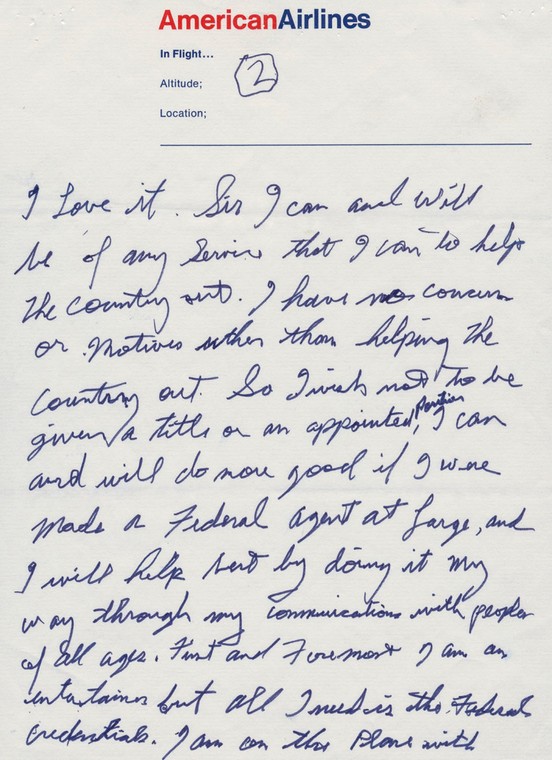 AmericanAirlines
In Flight...
Altitude;
2
Location;
I Love it. Sir I can and will
be of any Service that I can to help
the country out. I have no concern
or Motives other than helping the
country out. So I wish not to be
given a title or an appointed, Position I can
and will do more good if I were
made a Federal Agent at Large, and
I will help best by doing it my
way through my communications with people
of all ages. First and Foremost I am an
entertainer but all I need is the Federal
Credentials. I am on this Plane with